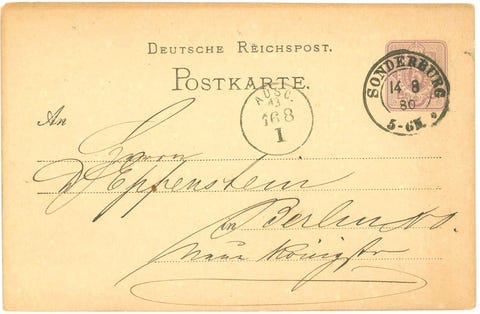 DEUTSCHE REICHSPOST.
POSTKARTE.
SONDERBURG
14 8
80
5-6N.
AUSG.
13
16 8
I
An
Herrn
D Eppenstein
in Berlin NO.
Neue Königstr